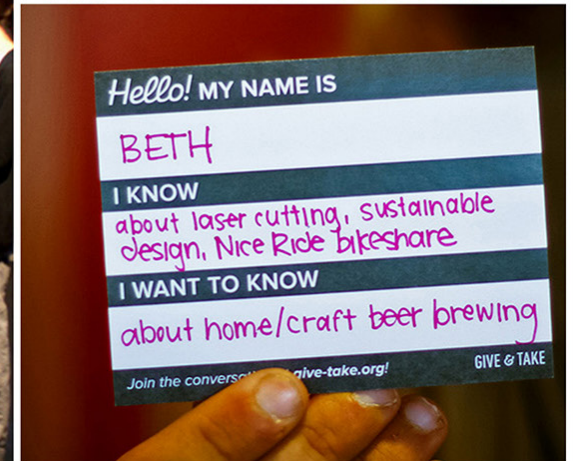 Hello! MY NAME IS
BETH
I KNOW
about laser cutting, sustainable
design, Nice Ride bikeshare
I WANT TO KNOW
about home/craft beer brewing
Join the give-take.org!
GIVE & TAKE